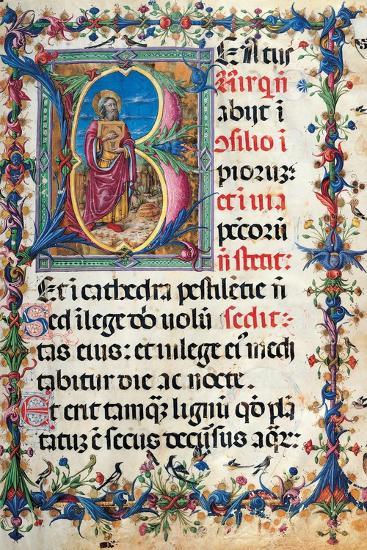 BEatus
Uir qui
abijt i
ɔsilio i
pioruz:
et i uia
peccorū
n̄ stetit:
Et i cathedra pestilētie n̄
Sed i lege dō uolū sedit:
tas eius: et i lege eī medi
tabitur die ac nocte.
Et erit tamqȝ lignū qd̄ plā
tatuȝ ē secus decursus aqr: